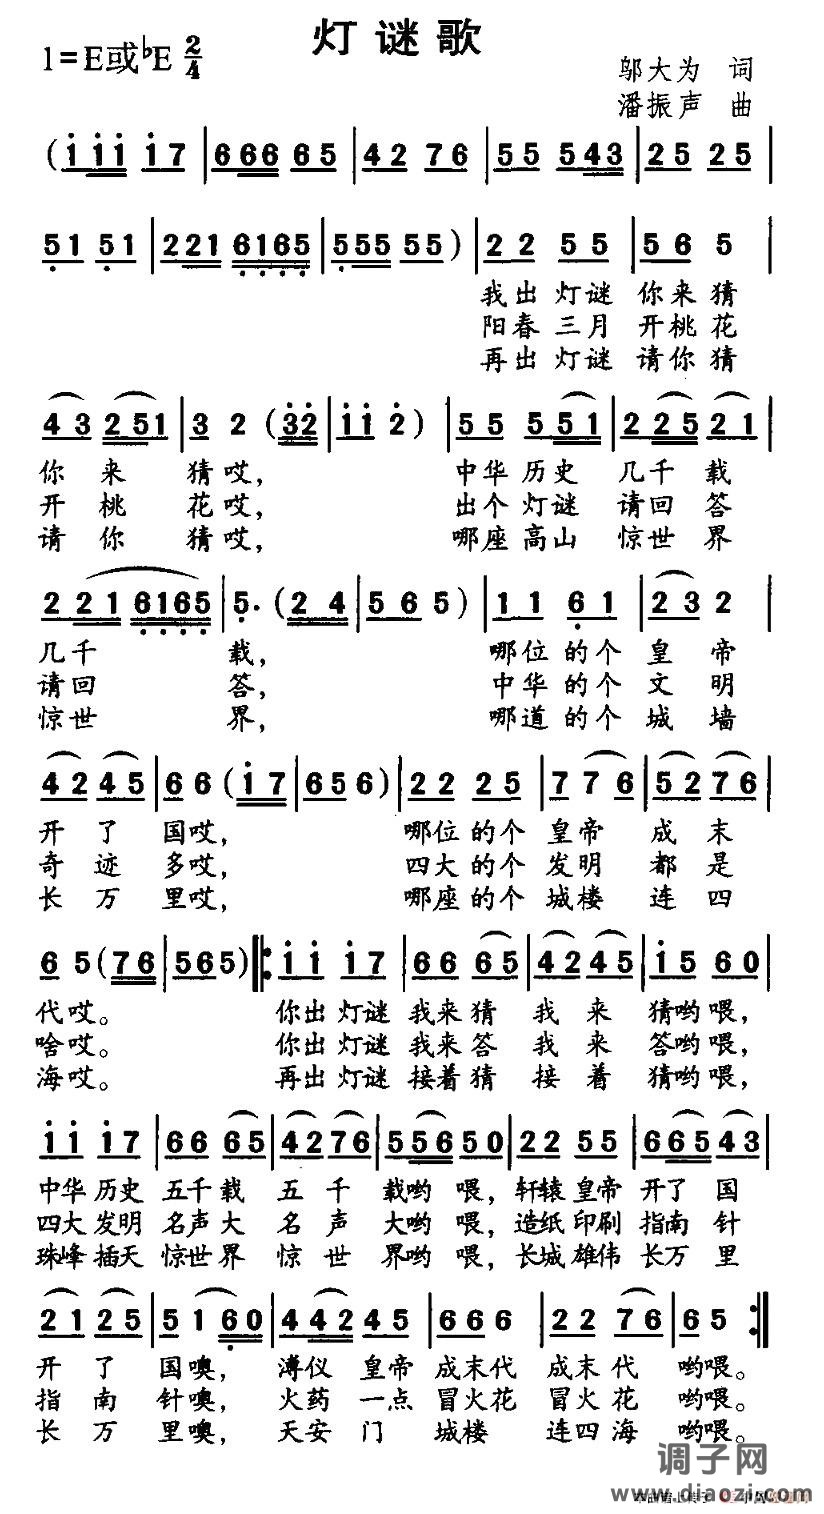 灯谜歌
1=E或♭E 2/4
邬大为 词
潘振声 曲
(i i i i 7 | 6 6 6 6 5 | 4 2 7 6 | 5 5 5 4 3 | 2 5 2 5 |
5 1 5 1 | 2 2 1 6 1 6 5 | 5 5 5 5 5 ) | 2 2 5 5 | 5 6 5 |
我出 灯谜 你来猜
阳春 三月 开桃花
再出 灯谜 请你猜
4 3 2 5 1 | 3 2 (3 2 | i i 2 ) | 5 5 5 5 1 | 2 2 5 2 1 |
你 来 猜哎, 中华 历史 几千 载
开 桃 花哎, 出个 灯谜 请回 答
请 你 猜哎, 哪座 高山 惊世 界
2 2 1 6 1 6 5 | 5. (2 4 | 5 6 5 ) | 1 1 6 1 | 2 3 2 |
几千 载, 哪位 的个 皇 帝
请回 答, 中华 的个 文 明
惊世 界, 哪道 的个 城 墙
4 2 4 5 | 6 6 (i 7 | 6 5 6 ) | 2 2 2 5 | 7 7 6 | 5 2 7 6 |
开 了 国哎, 哪位 的个 皇帝 成 末
奇 迹 多哎, 四大 的个 发明 都 是
长 万 里哎, 哪座 的个 城楼 连 四
6 5 (7 6 | 5 6 5 ) |: i i i 7 | 6 6 6 5 | 4 2 4 5 | i 5 6 0 |
代哎。 你出 灯谜 我来猜 我 来 猜哟喂,
啥哎。 你出 灯谜 我来答 我 来 答哟喂,
海哎。 再出 灯谜 接着猜 接 着 猜哟喂,
i i i 7 | 6 6 6 5 | 4 2 7 6 | 5 5 6 5 0 | 2 2 5 5 | 6 6 5 4 3 |
中华 历史 五千载 五 千 载哟 喂, 轩辕 皇帝 开了 国
四大 发明 名声大 名 声 大哟 喂, 造纸 印刷 指南 针
珠峰 插天 惊世界 惊 世 界哟 喂, 长城 雄伟 长万 里
2 1 2 5 | 5 1 6 0 | 4 4 2 4 5 | 6 6 6 6 | 2 2 7 6 | 6 5 :|
开 了 国噢, 溥仪 皇帝 成末代 成末代 哟喂。
指 南 针噢, 火药 一点 冒火花 冒火花 哟喂。
长 万 里噢, 天安 门 城楼 连四海 哟喂。
调子网
www.diaozi.com